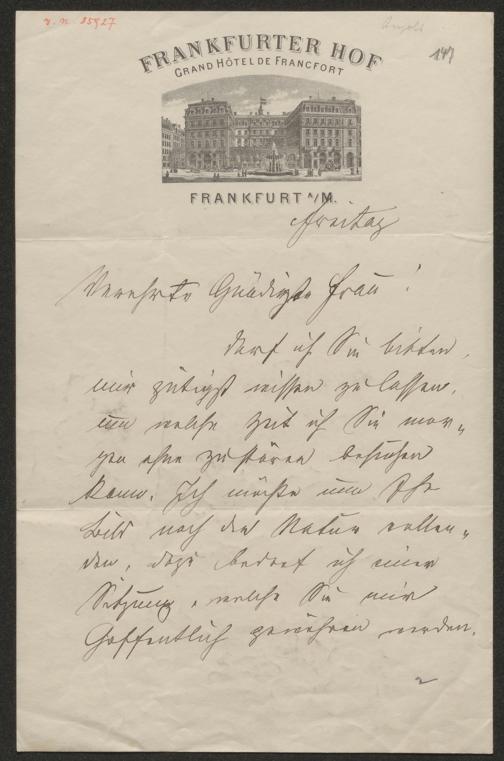 r. n. 25927
147
FRANKFURTER HOF
GRAND HÔTEL DE FRANCFORT
FRANKFURT A/M.
Freitag
Verehrte Gnädigste Frau!
Darf ich Sie bitten,
mir gütigst wissen zu lassen,
um welche Zeit ich Sie mor„
gen ohne zu stören besuchen
kann. Ich möchte nun Ihr
Bild nach der Natur vollen„
den, dazu bedarf ich einer
Sitzung, welche Sie mir
hoffentlich gewähren werden.